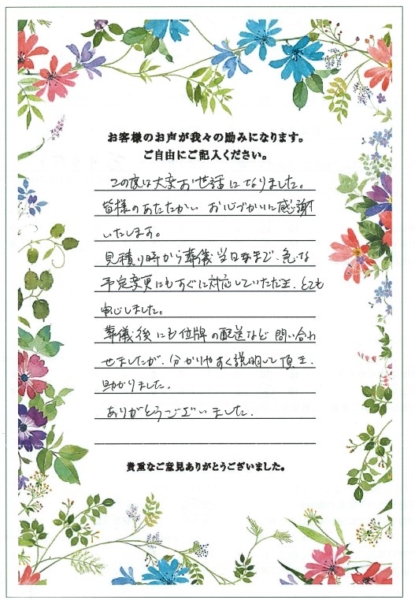 お客様のお声が我々の励みになります。
ご自由にご記入ください。
この度は大変お世話になりました。
皆様のあたたかい お心づかいに感謝
いたします。
見積り時から葬儀当日まで、急な
予定変更にもすぐに対応していただき、とても
安心しました。
葬儀後にも位牌の配送など 問い合わ
せましたが、分かりやすく説明して頂き、
助かりました。
ありがとうございました。
貴重なご意見ありがとうございました。